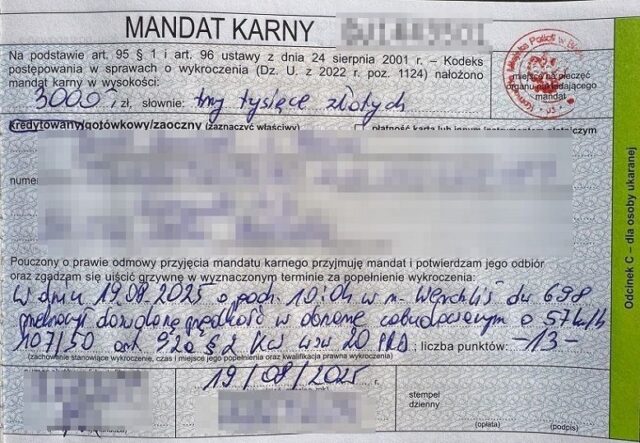 MANDAT KARNY
Na podstawie art. 95 § 1 i art. 96 ustawy z dnia 24 sierpnia 2001 r. – Kodeks
postępowania w sprawach o wykroczenia (Dz. U. z 2022 r. poz. 1124) nałożono
mandat karny w wysokości:
3000 zł, słownie: trzy tysiące złotych
miejsce na pieczęć
organu nakładającego
mandat
kredytowany/gotówkowy/zaoczny (zaznaczyć właściwy)
płatność kartą lub innym instrumentem płatniczym
numer
Pouczony o prawie odmowy przyjęcia mandatu karnego przyjmuję mandat i potwierdzam jego odbiór
oraz zgadzam się uiścić grzywnę w wyznaczonym terminie za popełnienie wykroczenia:
W dniu 19.08.2025 o godz. 10:04 w m. dw 698
przekroczył dozwoloną prędkość w obszarze zabudowanym o 57km/h
107/50 art. 92a § 2 kw w zw 20 PRD ; liczba punktów: -13-
(zachowanie stanowiące wykroczenie, czas i miejsce jego popełnienia oraz kwalifikacja prawna wykroczenia)
19/08/2025 r.
stempel
dzienny
(opłata)
(podpis)
Odcinek C – dla osoby ukaranej